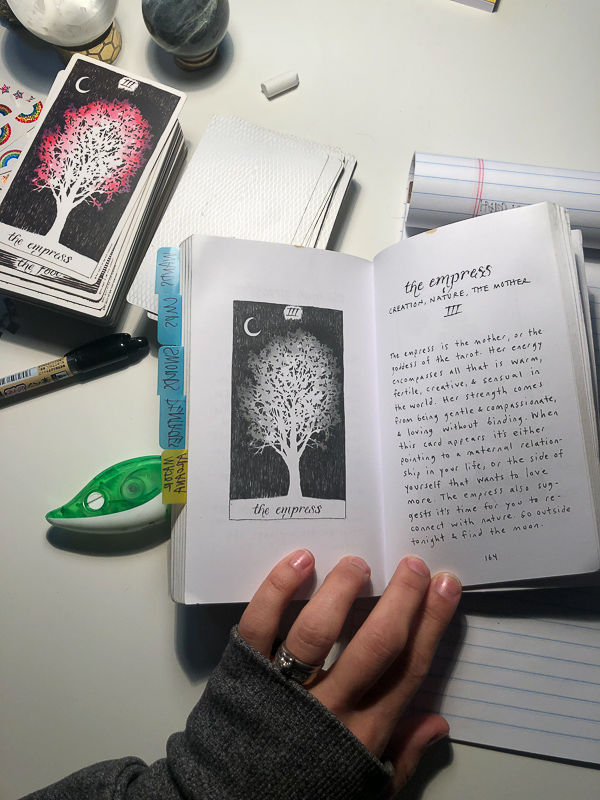 III
the empress
the fool
WANDS
CUPS
SWORDS
PENTACLES
MAJOR
ARCANA
III
the empress
the empress
CREATION, NATURE, THE MOTHER
III
The empress is the mother, or the
goddess of the tarot. Her energy
encompasses all that is warm,
fertile, creative, & sensual in
the world. Her strength comes
from being gentle & compassionate,
& loving without binding. When
this card appears it's either
pointing to a maternal relation-
ship in your life, or the side of
yourself that wants to love
more. The empress also sug-
gests it's time for you to re-
connect with nature. Go outside
tonight & find the moon.
164